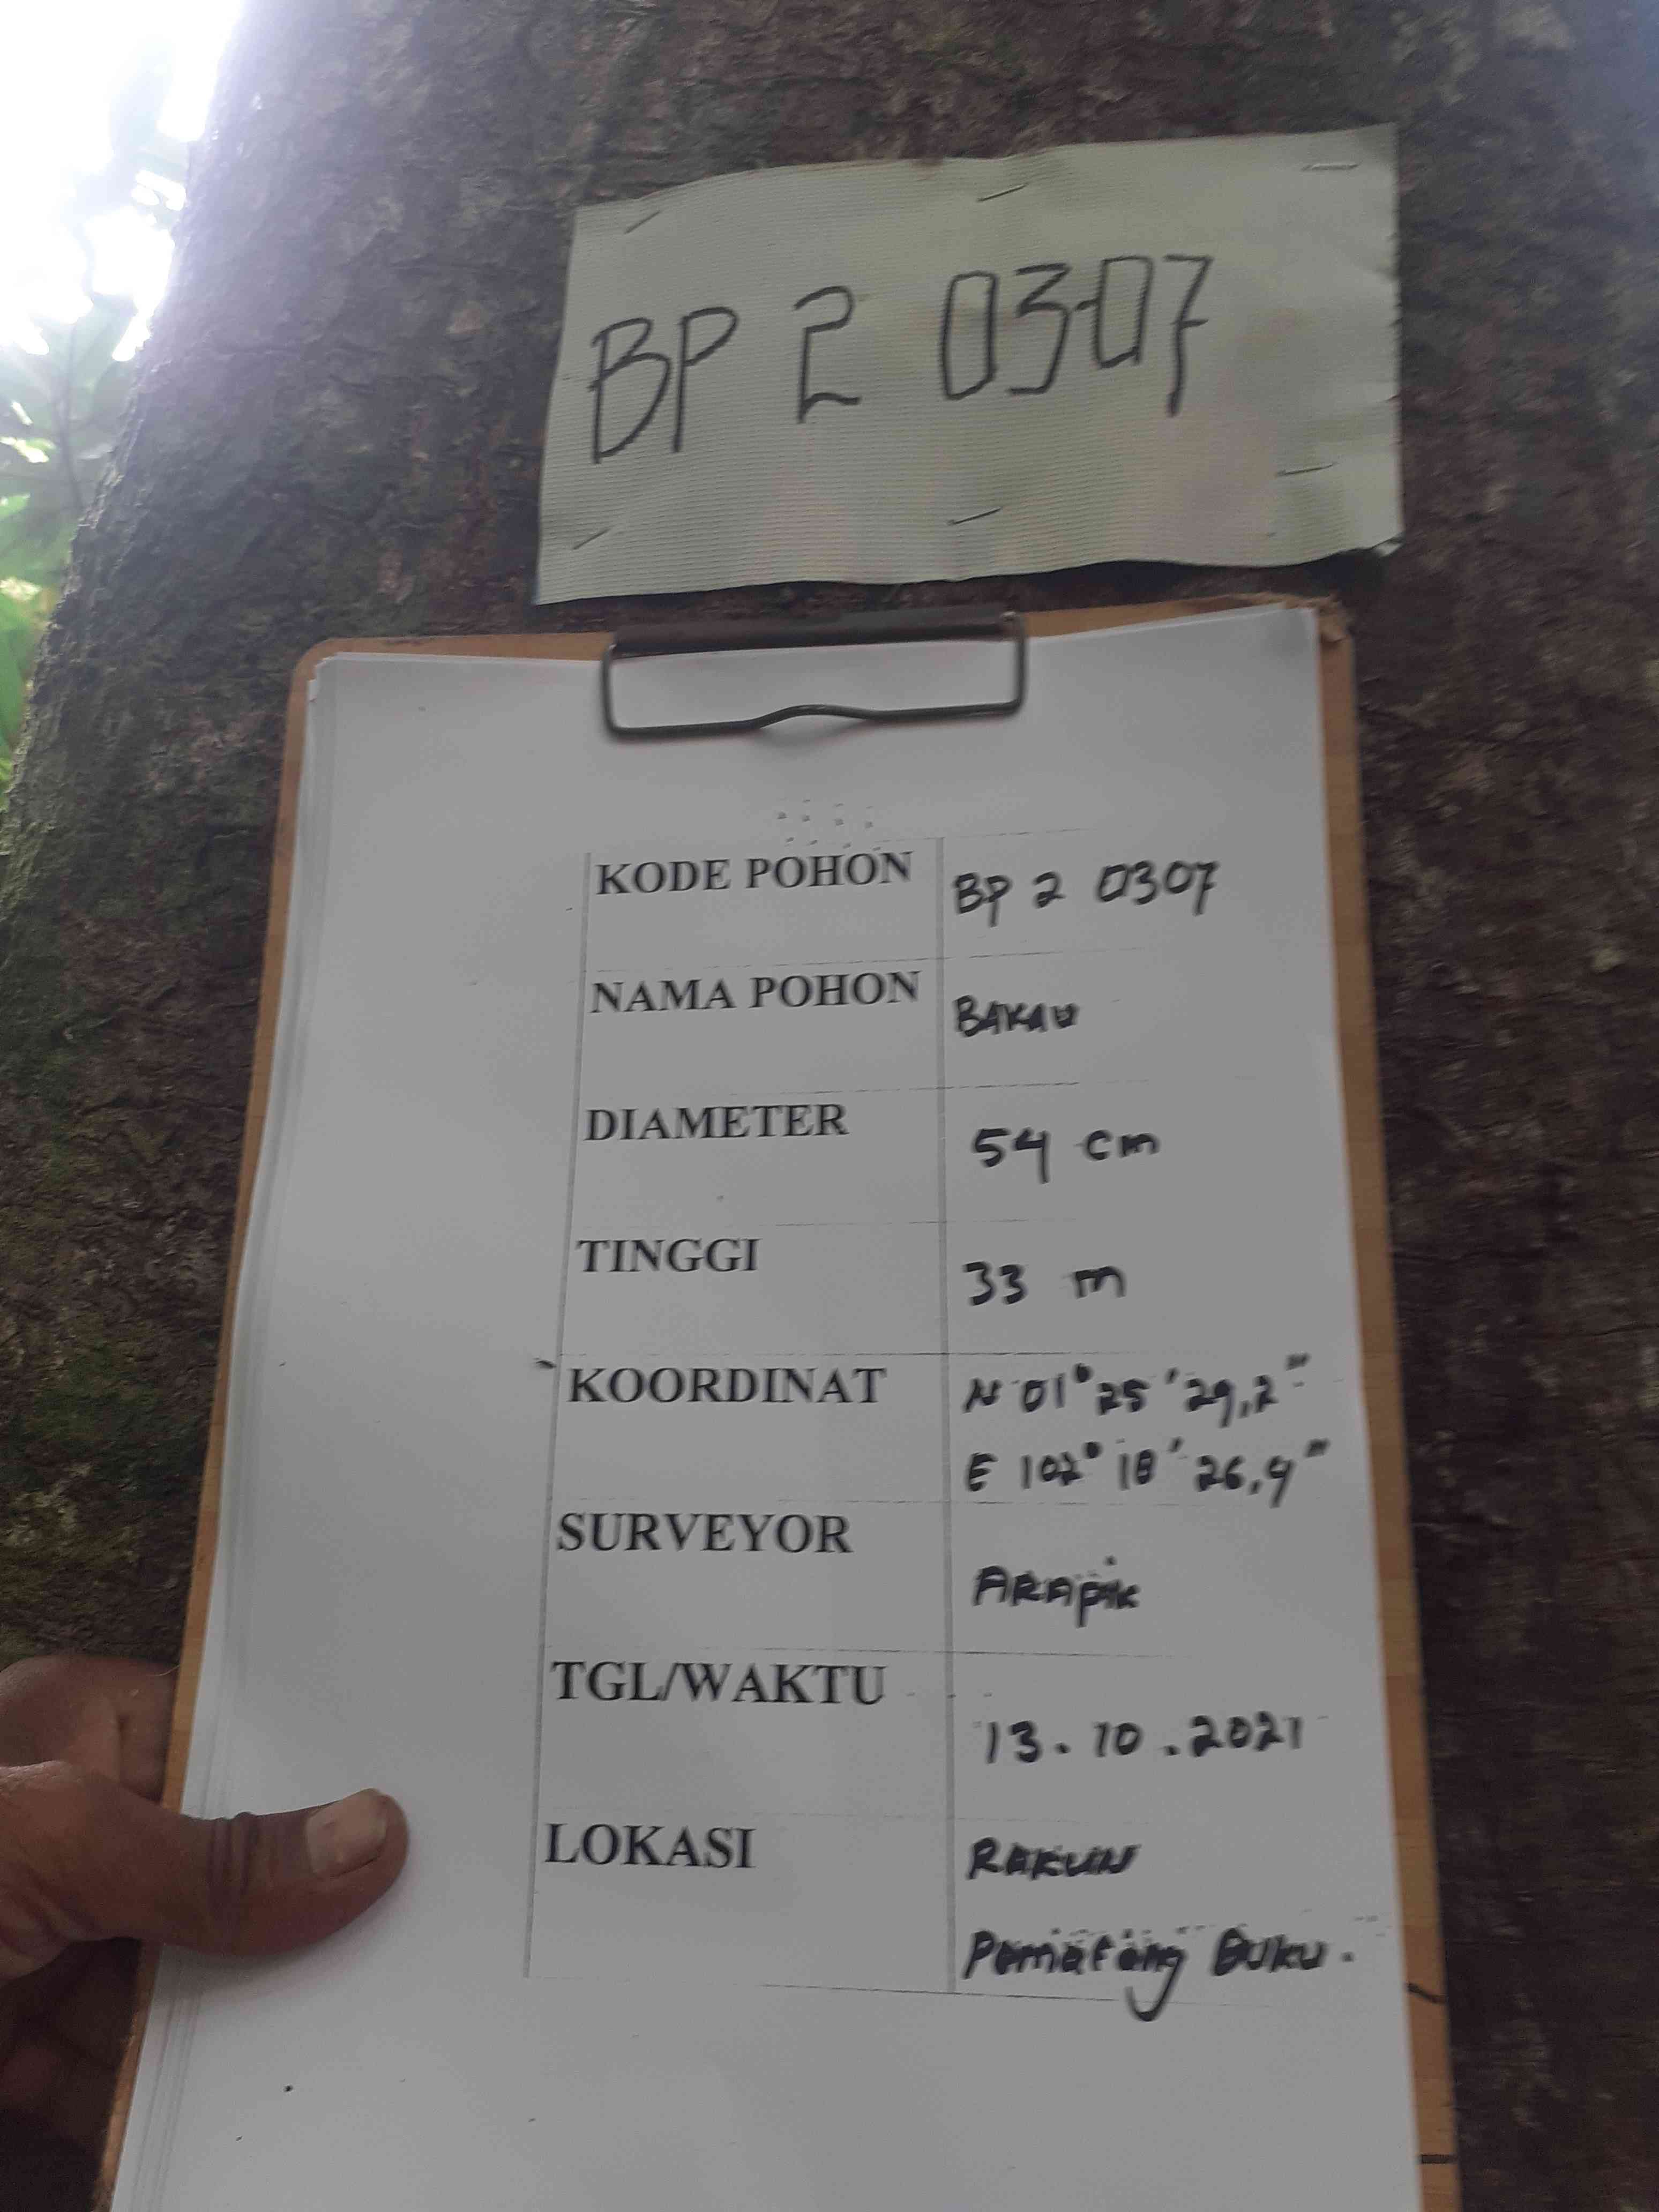 BP 2 0307
KODE POHON BP 2 0307
NAMA POHON BAKAU
DIAMETER 54 cm
TINGGI 33 m
KOORDINAT N 01° 25' 29,2"
E 102° 18' 26,9"
SURVEYOR
TGL/WAKTU 13.10.2021
LOKASI
Pematang Duku.